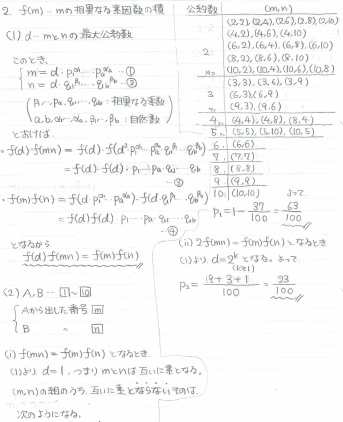 2 f(m)…mの相異なる素因数の積
(1) d…mとnの最大公約数
このとき、
{ m = d・p₁^α₁…pₐ^αₐ …①
n = d・q₁^β₁…q_b^β_b …②
( p₁,…pₐ, q₁…q_b : 相異なる素数
a, b, α₁…αₐ, β₁…β_b : 自然数 )
とおければ
・f(d)f(mn) = f(d)・f(d² p₁^α₁…pₐ^αₐ q₁^β₁…q_b^β_b)
= f(d)・f(d)・p₁…pₐ q₁…q_b
…③
・f(m)f(n) = f(d p₁^α₁…pₐ^αₐ)・f(d q₁^β₁…q_b^β_b)
= f(d)f(d) p₁…pₐ q₁…q_b
…④
となるから
f(d)f(mn) = f(m)f(n)
(2) A, B… 1～10
{ Aから出した番号 m
B 〃 n
(i) f(mn) = f(m)f(n) となるとき
(1)より、d=1、つまりmとnは互いに素となる。
(m,n)の組のうち、互いに素とならないものは、
次のようになる。
公約数 (m, n)
2 (2,2), (2,4), (2,6), (2,8), (2,10)
(4,2), (4,6), (4,10)
(6,2), (6,4), (6,8), (6,10)
(8,2), (8,6), (8,10)
(10,2), (10,4), (10,6), (10,8)
3 (3,3), (3,6), (3,9)
(6,3), (6,9)
(9,3), (9,6)
4 (4,4), (4,8), (8,4)
5 (5,5), (5,10), (10,5)
6 (6,6)
7 (7,7)
8 (8,8)
9 (9,9)
10 (10,10) よって、
P₁ = 1 - 37/100 = 63/100
(ii) 2f(mn) = f(m)f(n) となるとき
(1)より d=2^k となる。よって
(k≧1)
P₂ = (19+3+1)/100 = 23/100